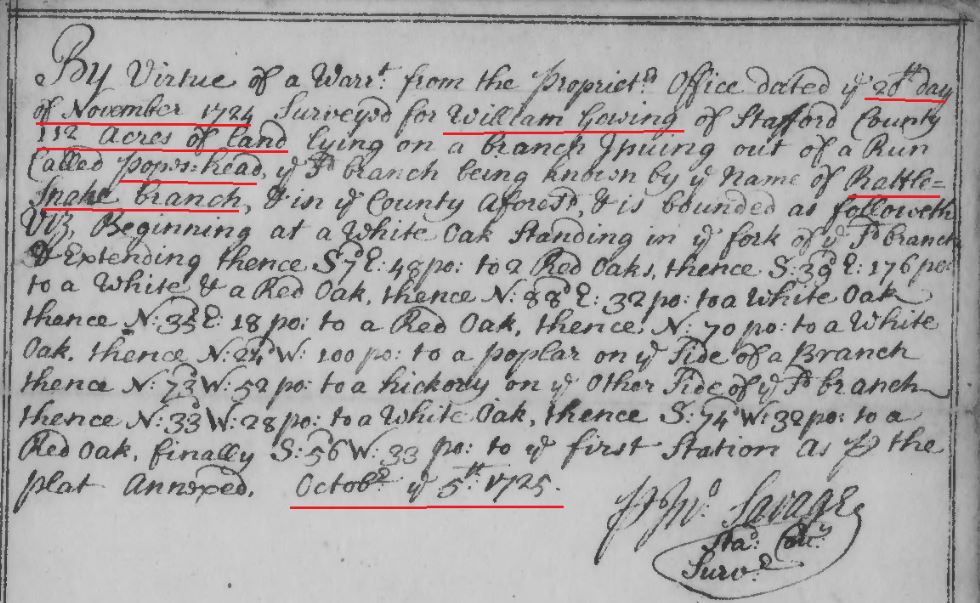 By Virtue of a Warrt. from the Proprietrs Office dated ye 20th day
of November 1724 Surveyed for William Gowing of Stafford County
112 Acres of Land lying on a branch Issuing out of a Run
Called Popwshead, ye sd branch being known by ye Name of Rattle=
Snake branch, & in ye County aforesd, & is bounded as followeth
Viz, Beginning at a White Oak Standing in ye fork of ye sd branch
& Extending thence S:7d E: 48 po: to 2 Red Oaks, thence S:39d E: 176 po:
to a White & a Red Oak, thence N: 88d E: 32 po: to a White Oak
thence N: 35d E: 18 po: to a Red Oak, thence N: 70 po: to a White
Oak, thence N: 24d W: 100 po: to a poplar on ye Side of a Branch
thence N: 73d W: 52 po: to a hickory on ye Other Side of ye sd branch
thence N: 33d W: 28 po: to a White Oak, thence S: 74d W: 38 po: to a
Red Oak, finally S: 56d W: 33 po: to ye first Station as p the
plat Annexed. Octobr ye 5th 1725.
p Jno. Savage
Sta: Couty.
Survr.